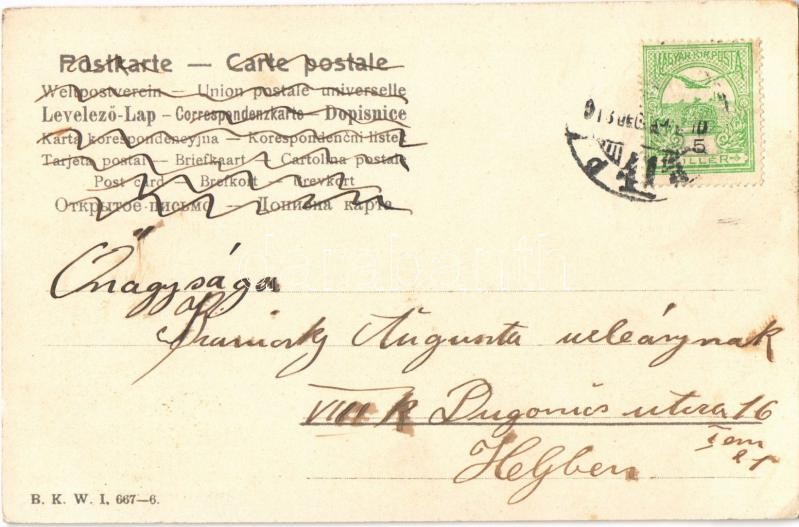 Postkarte — Carte postale
Weltpostverein — Union postale universelle
Levelező-Lap — Correspondenzkarte — Dopisnice
Karta korespondencyjna — Korespondenční listek
Tarjeta postal — Briefkaart — Cartolina postale
Post card — Brefkort — Brevkort
Открытое письмо — Дописна карта
MAGYAR KIR. POSTA
5
FILLÉR
Őnagysága
Auguszta urleánynak
VIII k Dugonics utcza 16
I em
Helyben
B. K. W. I, 667—6.
darabanth